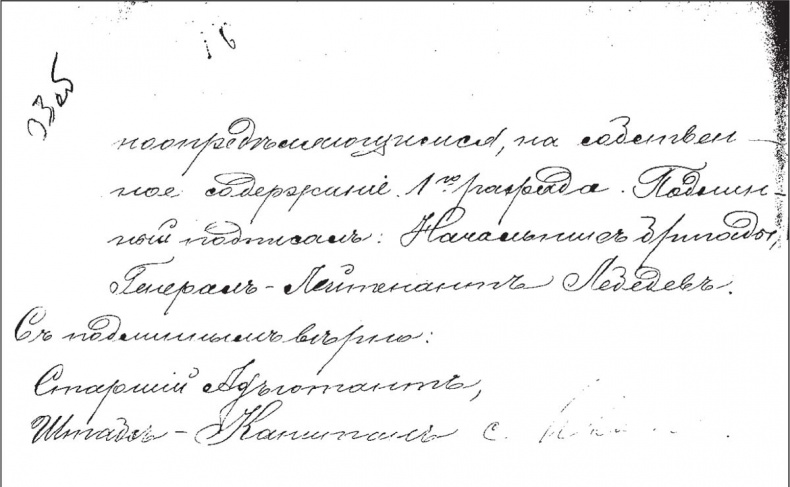 33 об
ноопредѣляющимся, на собствен-
ное содержаніе 1го разряда. Подлин-
ный подписалъ: Начальникъ бригады,
Генералъ-Лейтенантъ Лебедевъ.
Съ подлиннымъ вѣрно:
Старшій Адъютантъ,
Штабсъ-Капитанъ